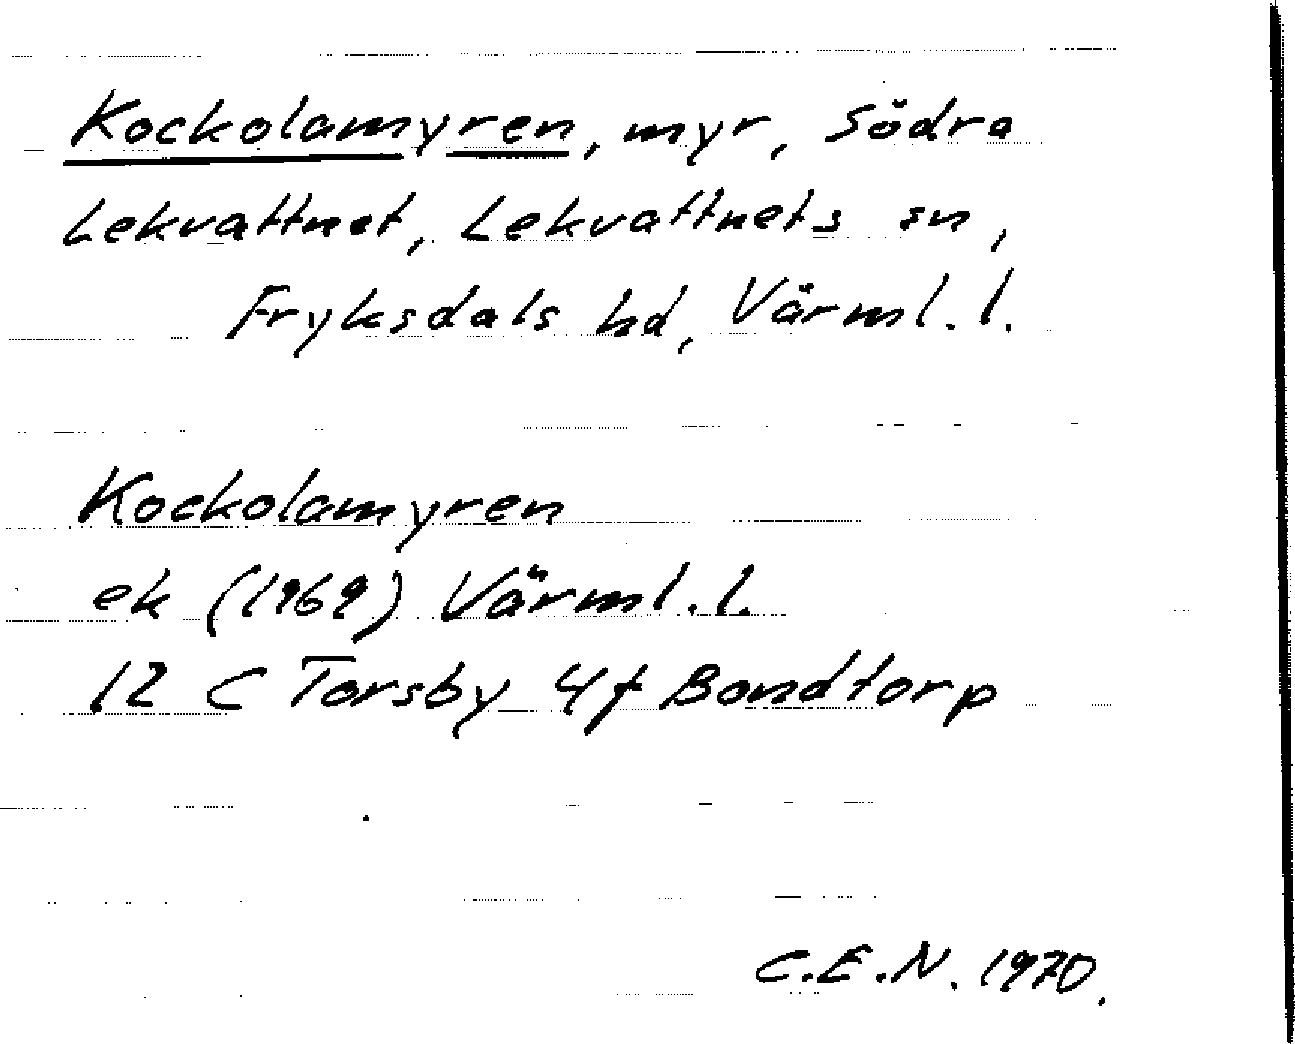 Kockolamyren, myr, Södra
Lekvattnet, Lekvattnets sn,
Fryksdals hd, Värml. l.
Kockolamyren
ek (1969) Värml. l.
12 C Torsby 4f Bondtorp
C.E.N. 1970.